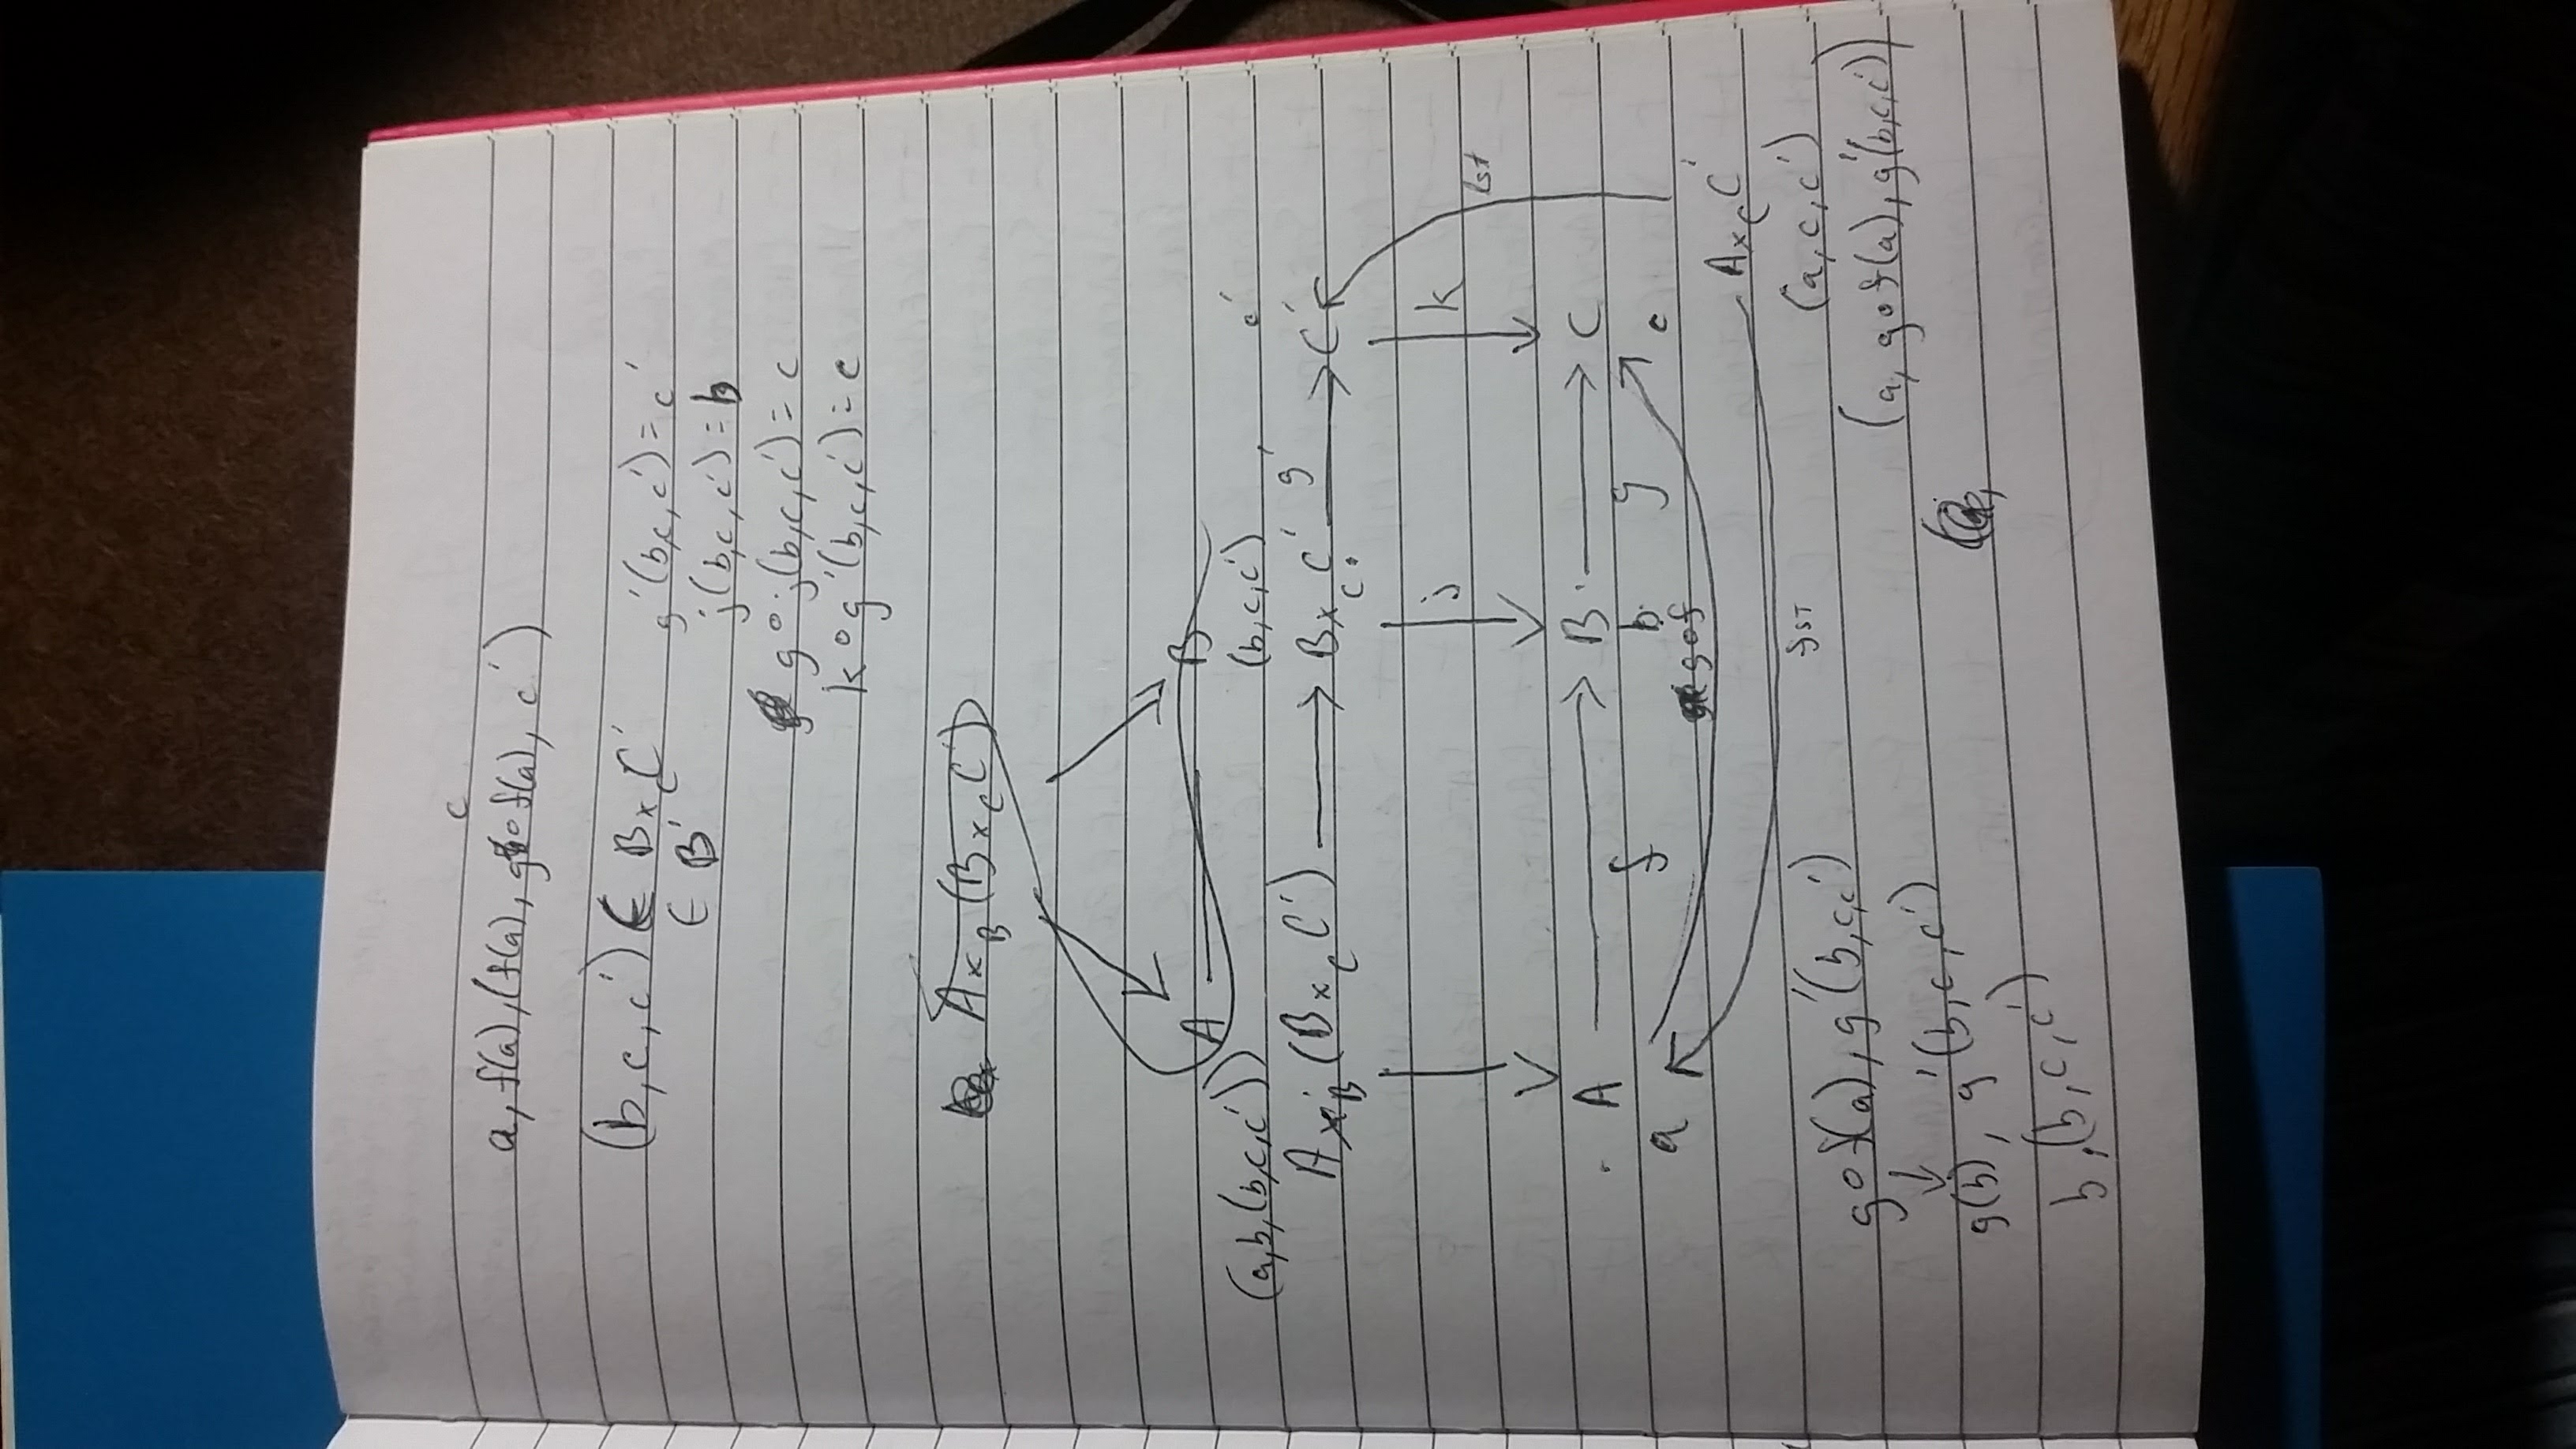 c
a, f(a), (f(a), g∘f(a), c')
(b, c, c') ∈ B×_C C' g'(b,c,c') = c'
∈ B' j(b,c,c') = b
g∘j(b,c,c') = c
k∘g'(b,c,c') = c
A×_B (B×_C C')
A B
(a,b,(b,c,c')) (b,c,c') c'
A×_B (B×_C C') B×_C C' g' C'
j k
lst
A B C
f g
a b c
g∘f
A×_C C'
fst
g∘f(a), g'(b,c,c') (a,c,c')
(a, g∘f(a), g'(b,c,c'))
g(b), g'(b,c,c')
b,(b,c,c')